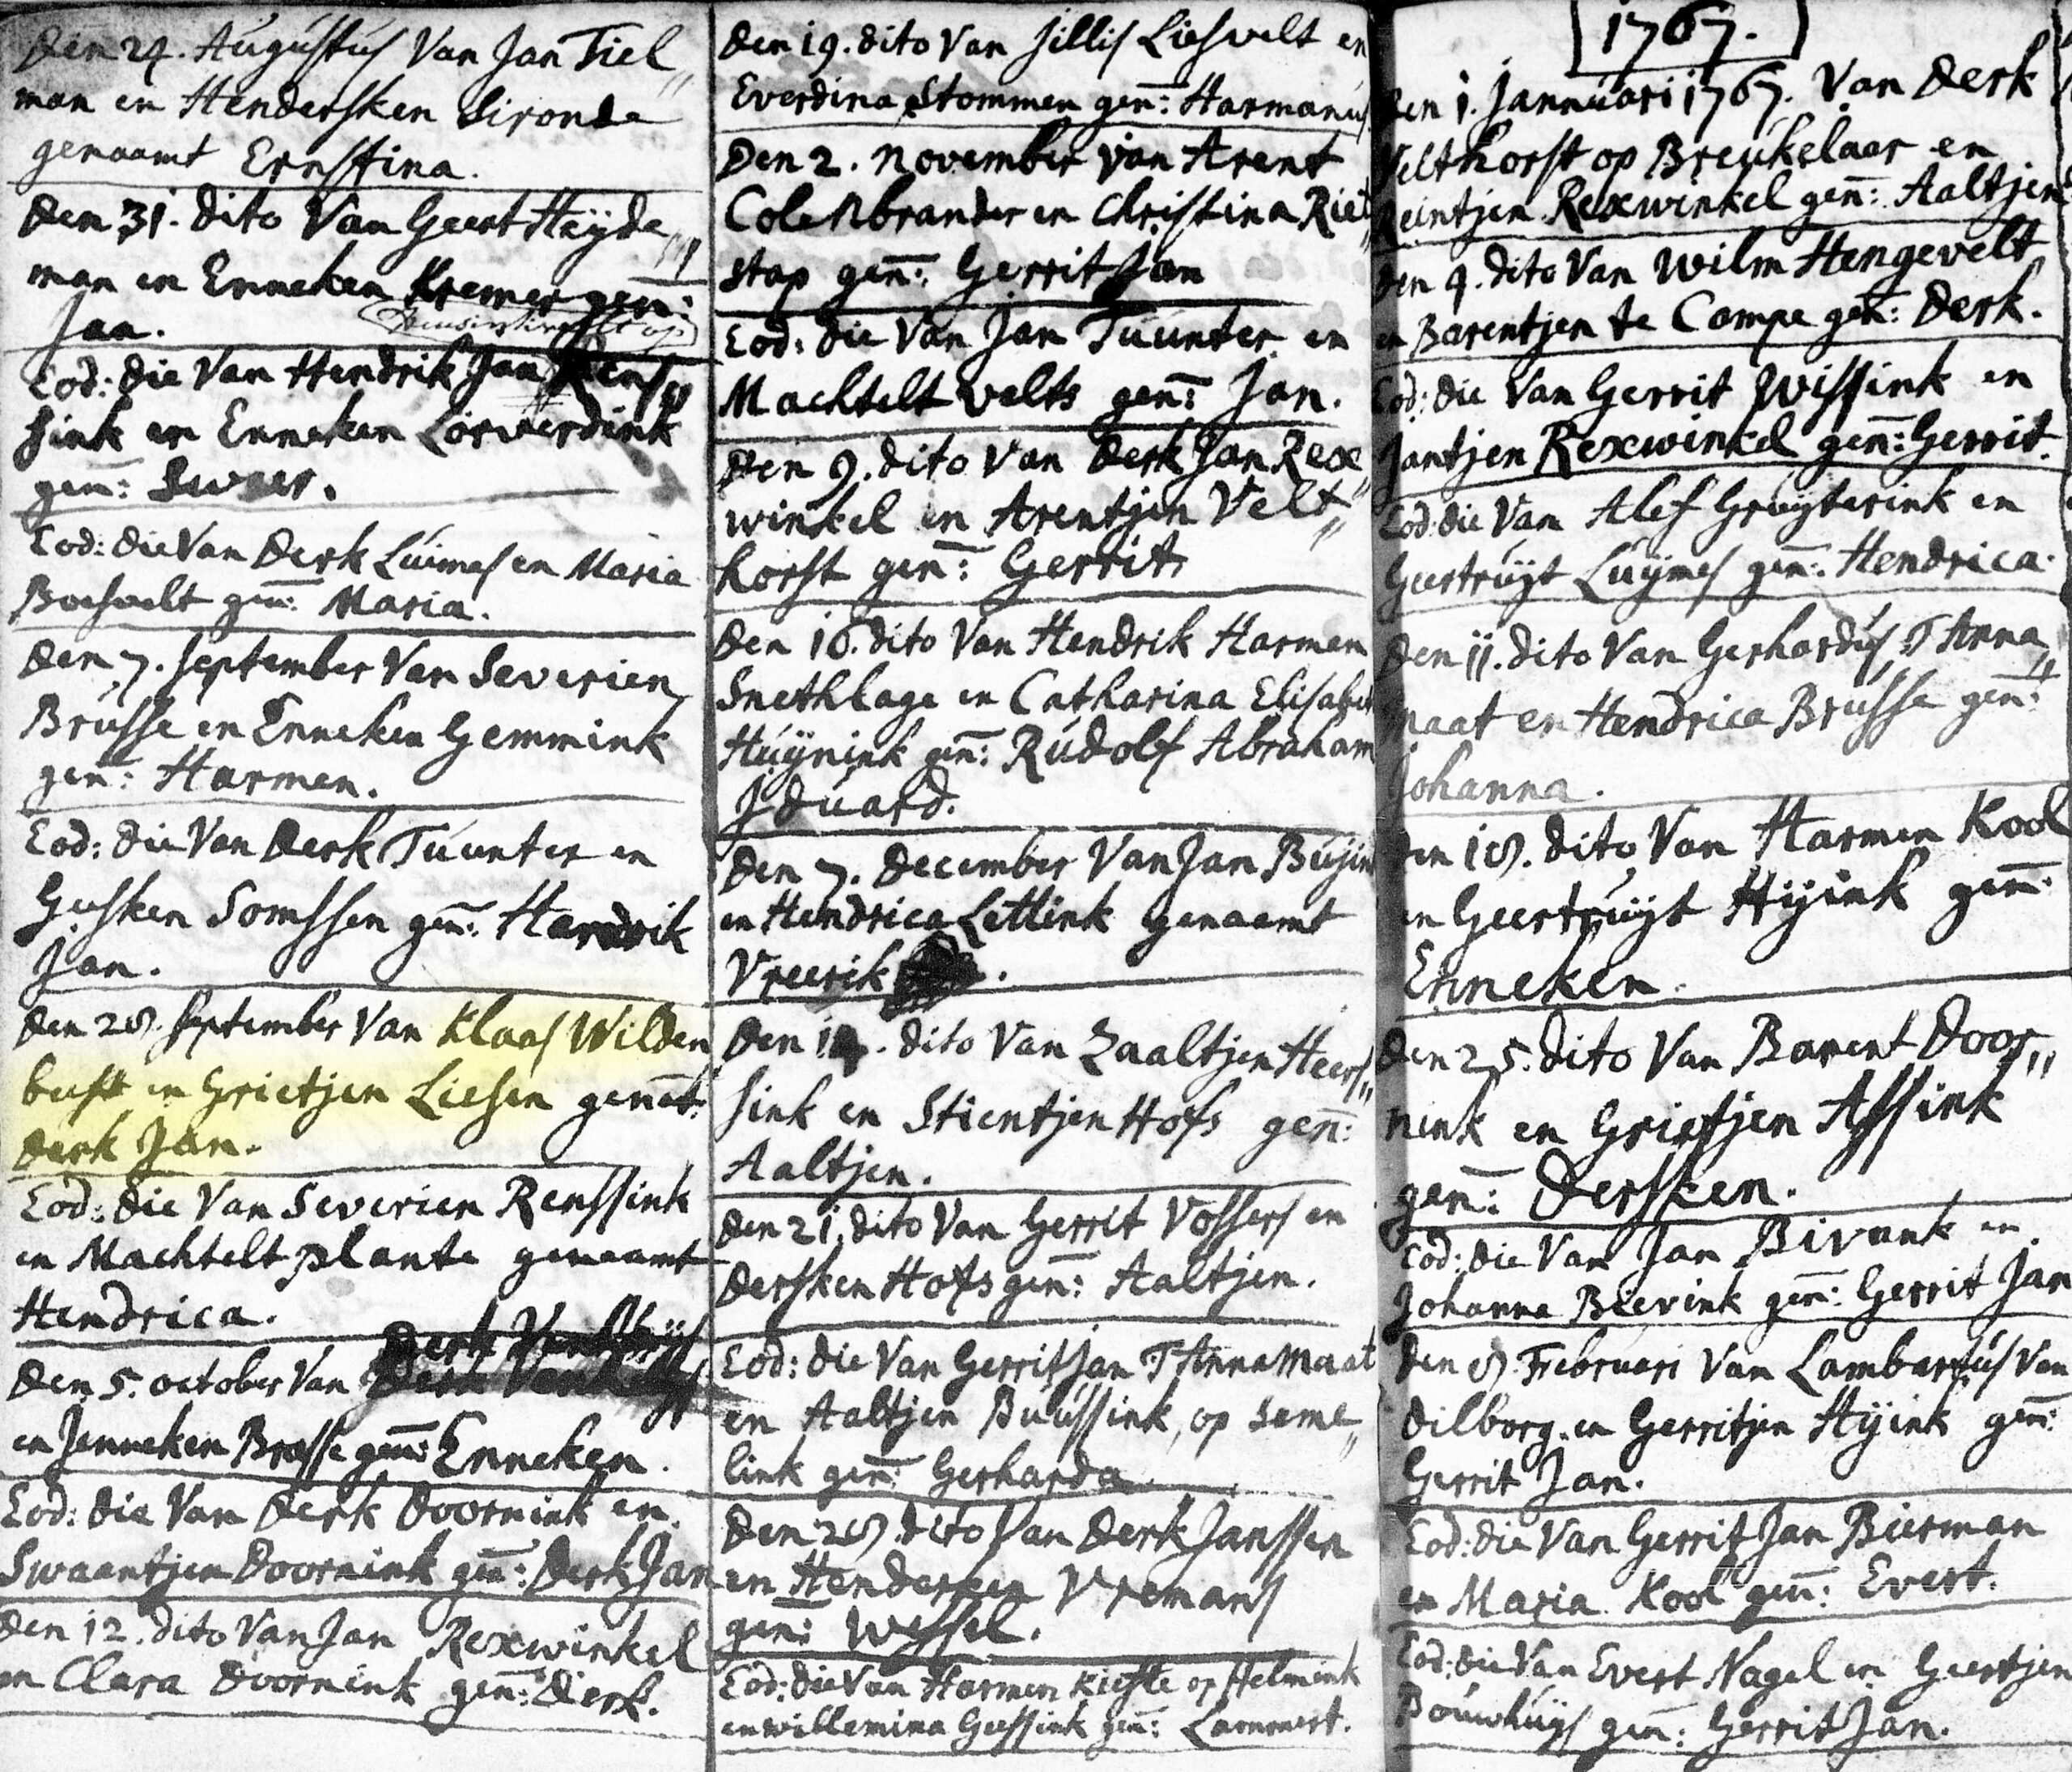 Den 24. Augustus Van Jan Tiel„
man en Hendersken Sironda
genaamt Ernstina.
Den 31. dito Van Geert Heyde„
man en Enneken Kremer gen:
Jan.
Eod: die Van Hendrik Jan Rens„
sink en Enneken Lörverdink
gen: Sweer.
Eod: die Van Derk Luimes en Maria
Boesvelt gen: Maria.
Den 7. September Van Severien
Brusse en Enneken Gemmink
gen: Harmen.
Eod: die Van Derk Tuunter en
Gesken Somssen gen: Hendrik
Jan.
Den 28. September Van Klaas Wilden
beest en Grietjen Liesen genamt:
Derk Jan.
Eod: die Van Severien Renssink
en Machtelt plante genaamt
Hendrica.
Den 5. october Van Derk
en Jenneken Brasse gen: Enneken.
Eod: die Van Derk Doornink en
Swaantjen Doornink gen: Derk Jan
Den 12. dito Van Jan Rexwinkel
en Clara Doornink gen: Dierk.
Den 19. dito Van Jillis Liesvelt en
Everdina Stommen gen: Harmanus
Den 2. november van Arent
Colenbrander en Christina Riet„
stap gen: Gerrit Jan
Eod: die Van Jan Tuunter en
Machtelt velts gen: Jan.
Den 9. dito Van Derk Jan Rex
winkel en Arentjen Velt„
horst gen: Gerrit.
Den 16. dito Van Hendrik Harmen
Snethlage en Catharina Elisabet
Huijnink gen: Rudolf Abraham
Jduard.
Den 7. December Van Jan Busin
en Hendrica Lettink genaamt
Vreerik .
Den 14. dito Van Zaaltjen Heers„
sink en Stientjen Hofs gen:
Aaltjen.
Den 21. dito Van Gerrit Vossers en
Dersken Hofs gen: Aaltjen.
Eod: die Van Gerrit Jan T Anna Maat
en Aaltjen Buussink, op Seme„
link gen: Gerharda
Den 28. dito Van Derk Janssen
en Hendersken Vremans
gen: Wessel.
Eod: die Van Harmen Kiefte op Helmink
en willemina Geessink gen: Lammert.
1767.
Den 1. Jannuari 1767. Van Derk
Velthorst op Breukelaar en
Reintjen Rexwinkel gen: Aaltjen
Den 4. dito Van Wilm Hengevelt
en Barentjen te Campe gen: Derk.
Eod: die Van Gerrit Wissink en
Jantjen Rexwinkel gen: Gerrit.
Eod: die Van Alef Gruyterink en
Geertruyt Luymes gen: Hendrica.
Den 11. dito Van Gerhardus T Anna„
maat en Hendrica Brusse gen:
Johanna.
Den 18. dito Van Harmen Kool
en Geertruyt Hijink gen:
Enneken.
Den 25. dito Van Barent Door„
nink en Grietjen Assink
gen: Dersken.
Eod: die Van Jan Bivank en
Johanna Bievink gen: Gerrit Jan
Den 8. Februari Van Lambartus Van
Dilborg en Gerritjen Hijink gen:
Gerrit Jan.
Eod: die Van Gerrit Jan Bierman
en Maria Kool gen: Evert.
Eod: die Van Evert Nagel en Geertjen
Bouwhuys gen: Gerrit Jan.